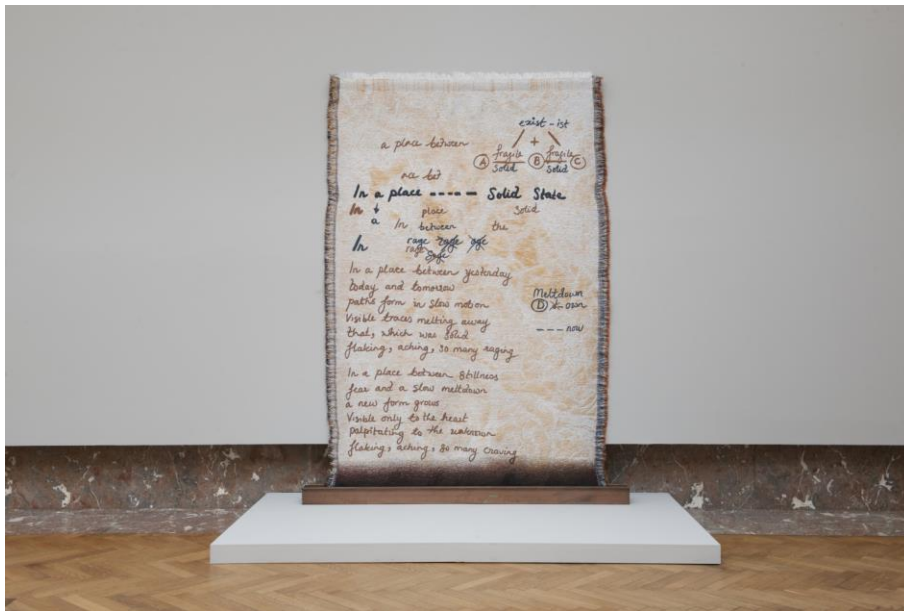 exist-ist
+
a place between
A fragile B fragile C
solid solid
nce bet
In a place ----- Solid State
In ↓ place Solid
a In between the
In rage rage age
rage
In a place between yesterday
today and tomorrow
paths form in slow motion
Visible traces melting away
that, which was solid
flaking, aching, so many raging
Meltdown
D
---now
In a place between stillness
fear and a slow meltdown
a new form grows
Visible only to the heart
palpitating to the unknown
flaking, aching, so many craving